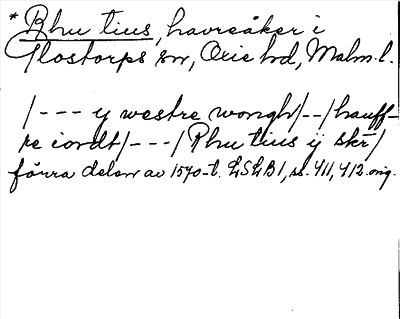 *Rhu tius, havreåker i
Glostorps sn, Oxie hd, Malm. l.
/--- y westre wongh/--/hauff-
re iordt/---/Rhu tius ij skr̄/
förra delen av 1570-t. LSLB1, ss. 411, 412. orig.